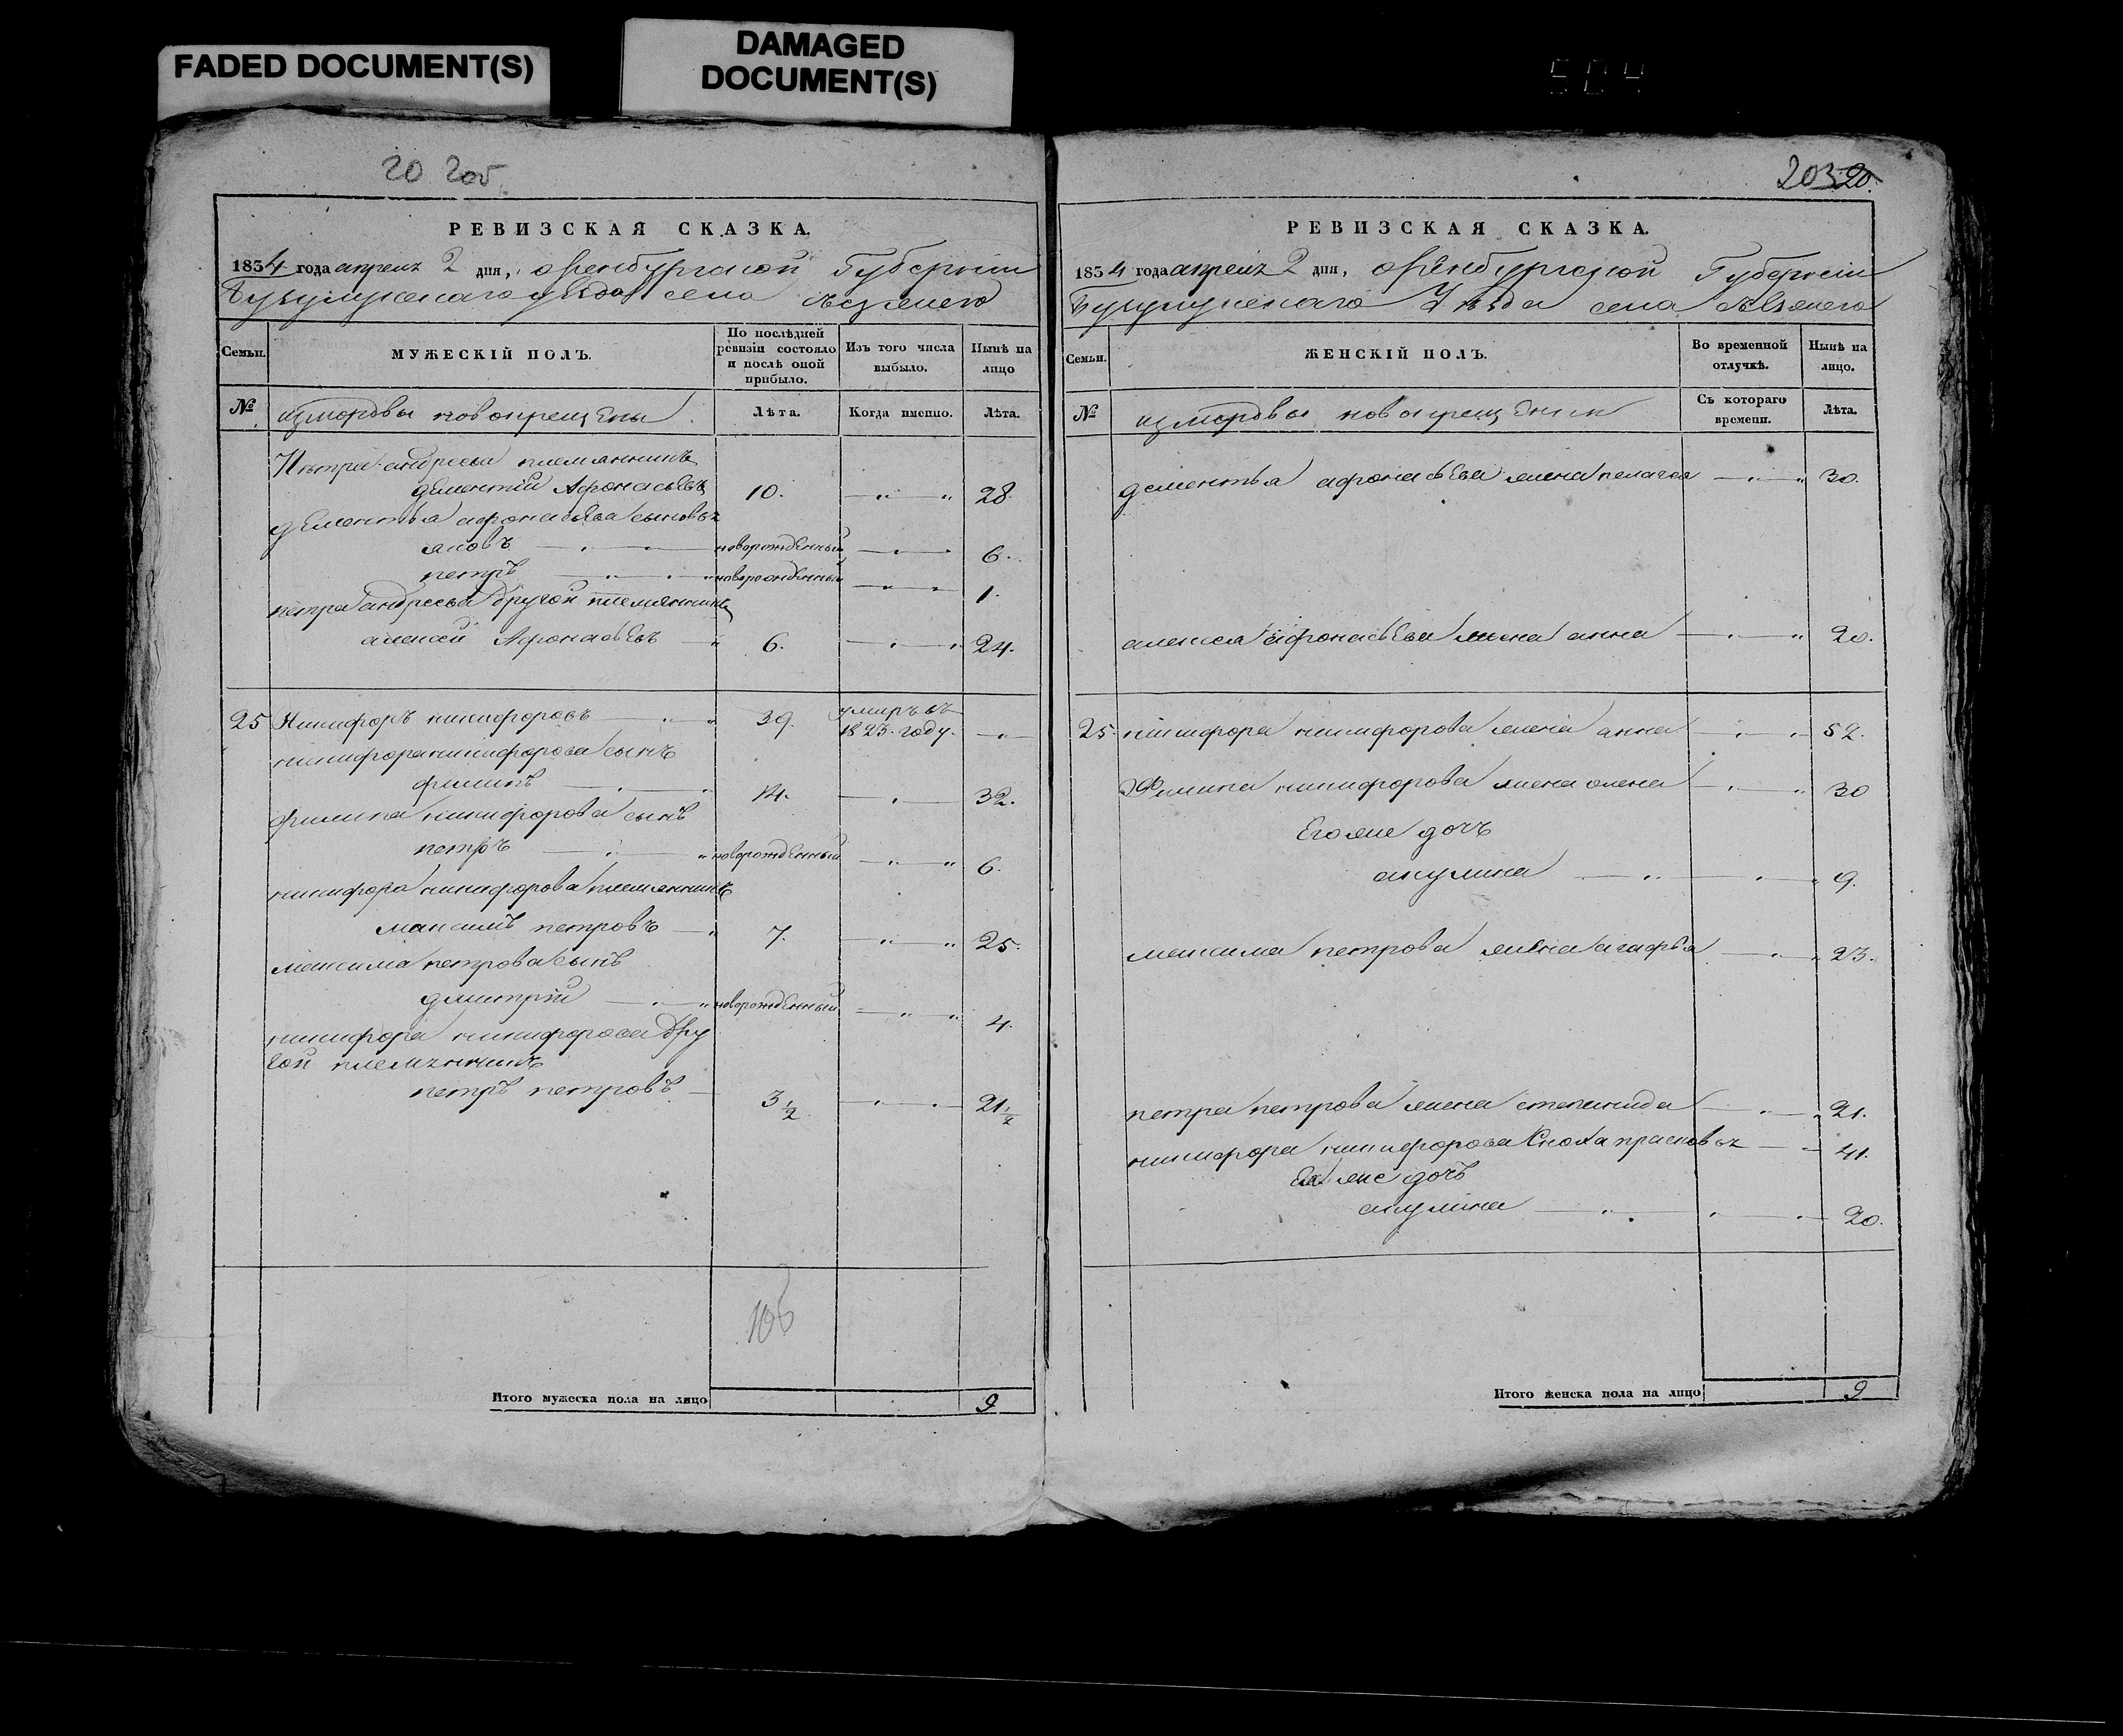 FADED DOCUMENT(S)
DAMAGED
DOCUMENT(S)
504
20 205.
РЕВИЗСКАЯ СКАЗКА.
1834 года апреля 2 дня, оренбургской Губернiи
Бугульминскаго уезда села
Семьи.
МУЖЕСКIЙ ПОЛЪ.
По послѣдней ревизiи состояло и послѣ оной прибыло.
Изъ того числа выбыло.
Нынѣ на лицо
№
измордвы новокрещены
Лѣта.
Когда именно.
Лѣта.
Петра андреева племянникъ
дементiй Афонасьевъ 10. 28.
дементья афонасьева сыновья
яковъ новорожденный 6.
петръ новорожденный 1.
петра андреева другой племянникъ
алексей Афонасьевъ 6. 24.
25 Никифоръ никифоровъ 39. умиръ въ 1823. году.
никифора никифорова сынъ
филипъ 14. 32.
филипа никифорова сынъ
петръ новорожденный 6.
никифора никифорова племянникъ
максимъ петровъ 7. 25.
максима петрова сынъ
дмитрiй новорожденный 4.
никифора никифорова дру
гой племянникъ
петръ петровъ 3 1/2 21 1/2
106
Итого мужеска пола на лицо 9
203 20.
РЕВИЗСКАЯ СКАЗКА.
1834 года апреля 2 дня, оренбургской Губернiи
Бугульминскаго Уезда села
Семьи.
ЖЕНСКIЙ ПОЛЪ.
Во временной отлучкѣ.
Нынѣ на лицо.
№
измордвы новокрещенки
Съ котораго времени.
Лѣта.
дементья афонасьева жена пелагея 30.
алексея афонасьева жена анна 20.
25. никифора никифорова жена анна 52.
Филипа никифорова жена олена 30
Его же дочь
акулина 9.
максима петрова жена агафья 23.
петра петрова жена степанида 21.
никифора никифорова Сноха прасковья 41.
Ея же дочь
акулина 20.
Итого женска пола на лицо 9